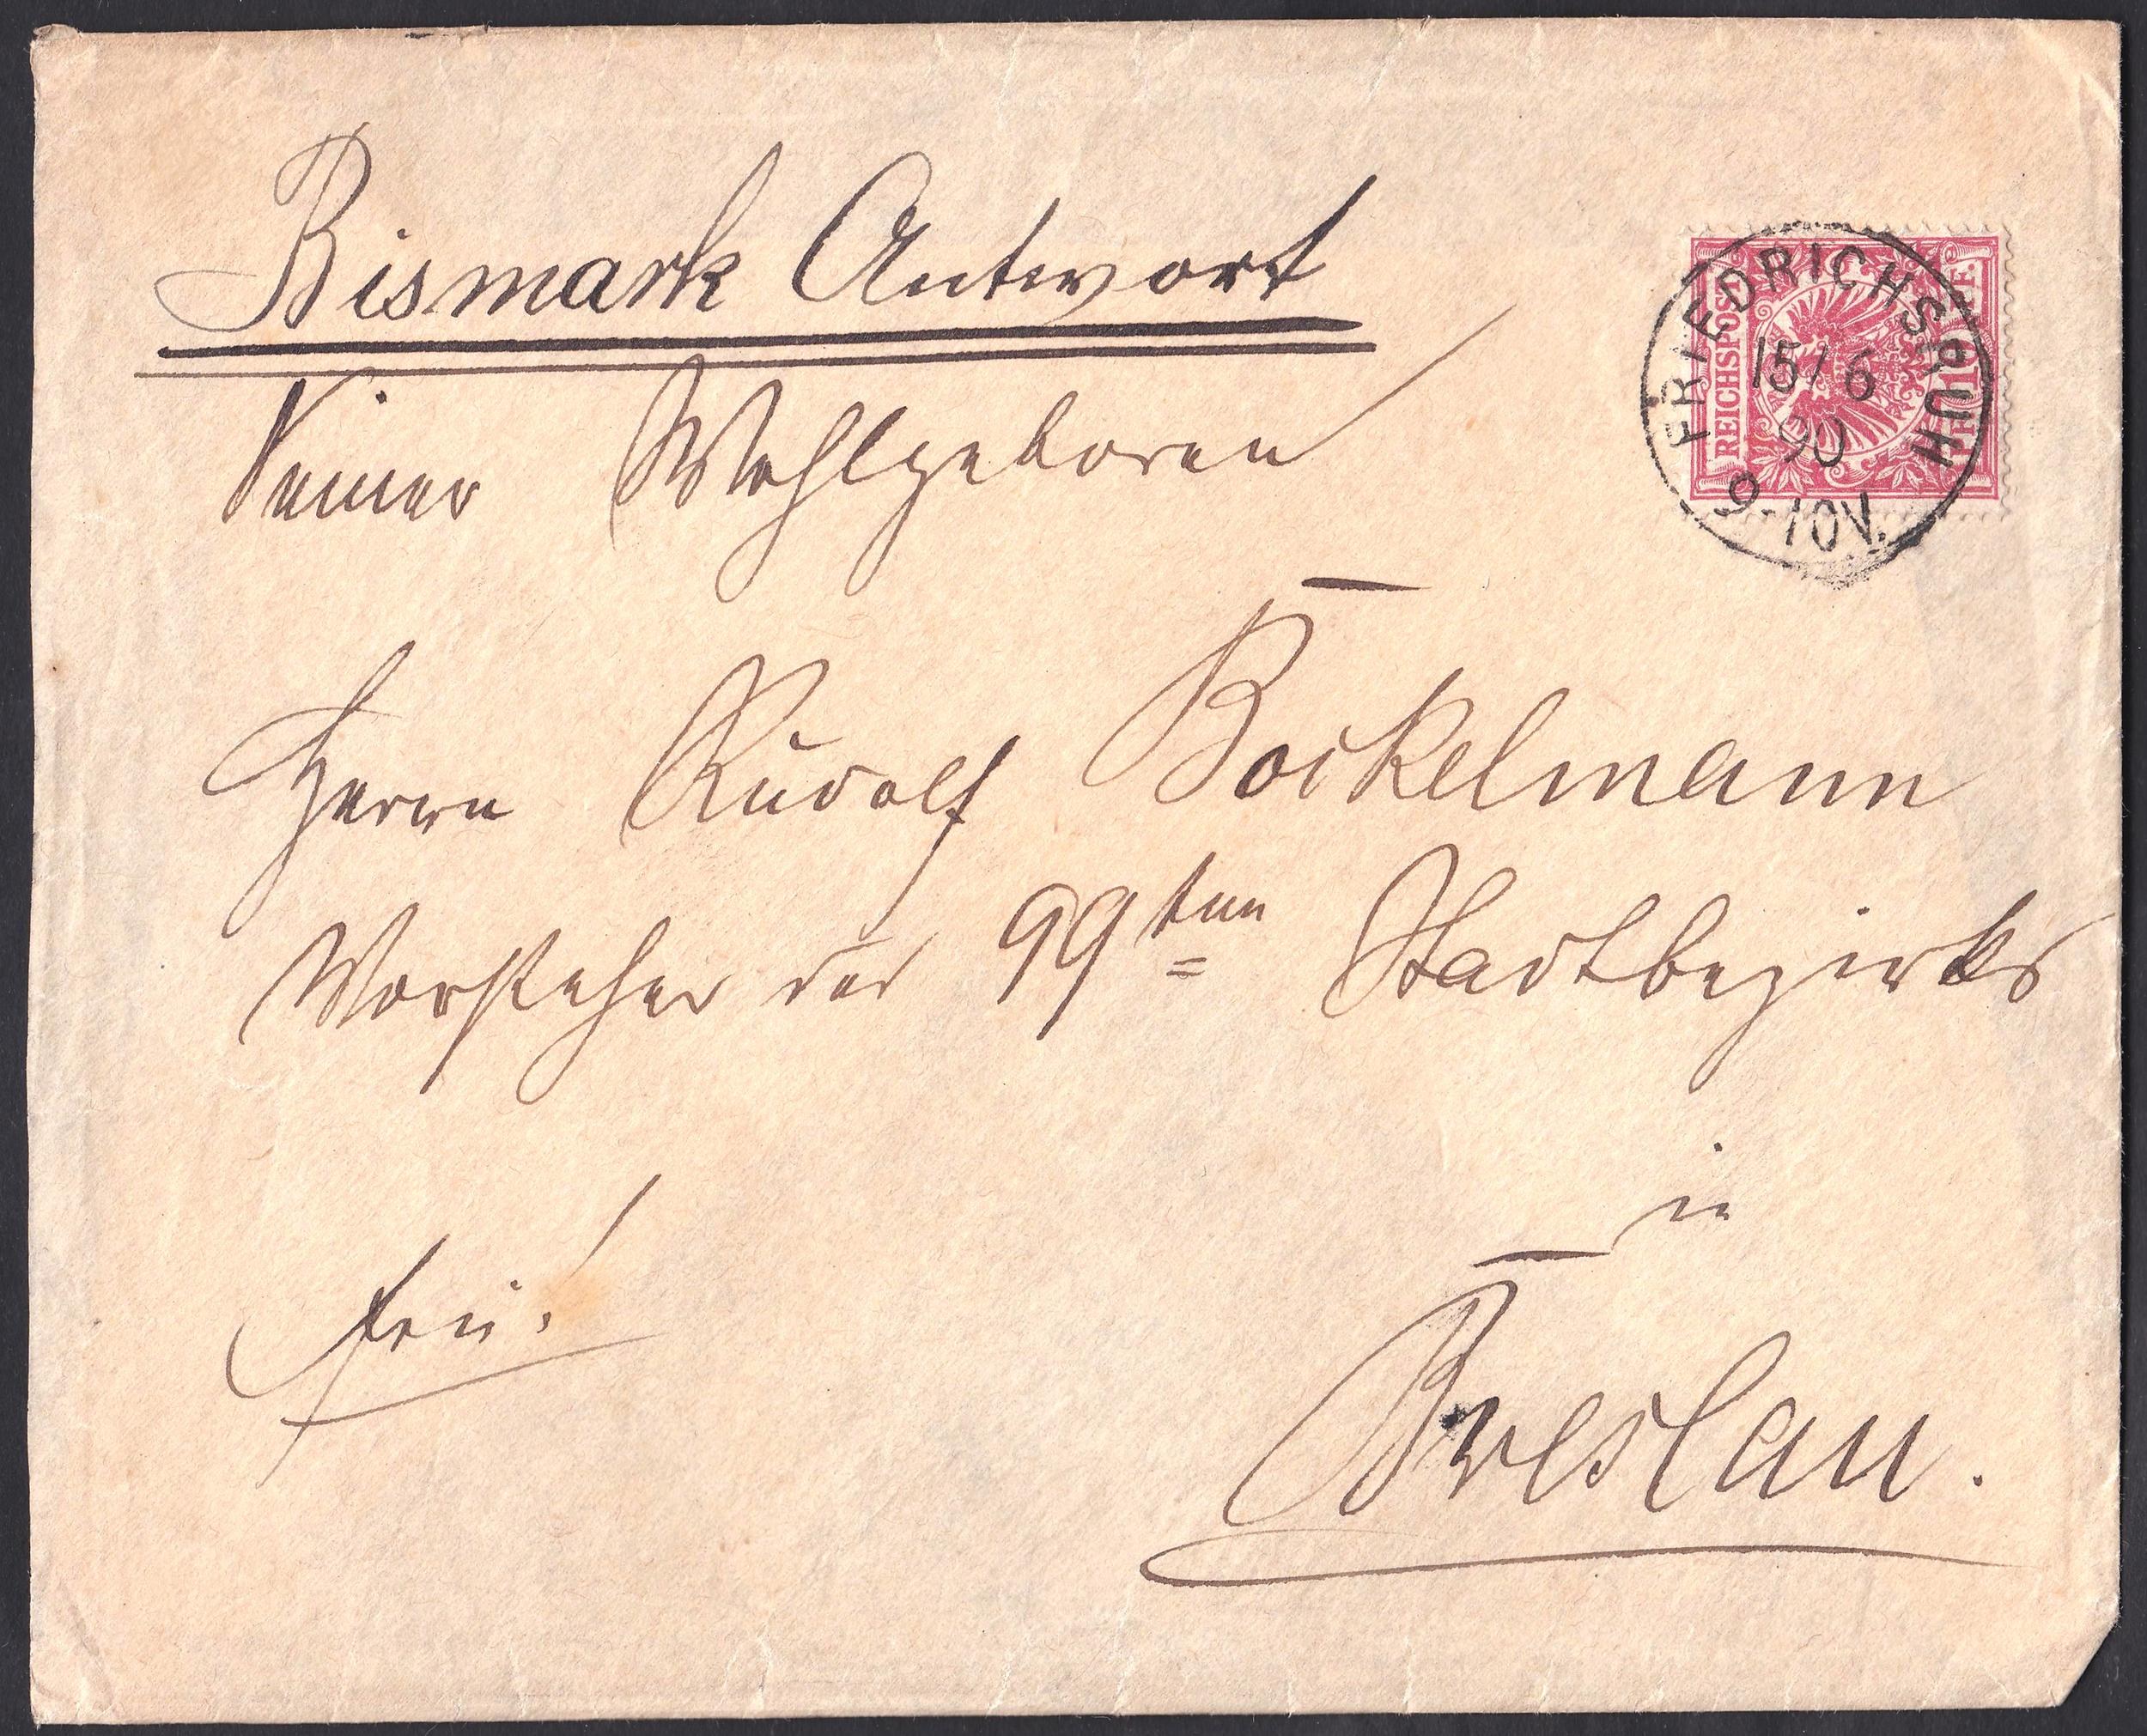 Bismark Antwort
Seiner Wohlgeboren
Herrn Rudolf Bockelmann
Vorsteher des 99ten Stadtbezirks
in
frei!
Breslau.
FRIEDRICHSRUH
15/6
90
9-10V.
REICHSPOST